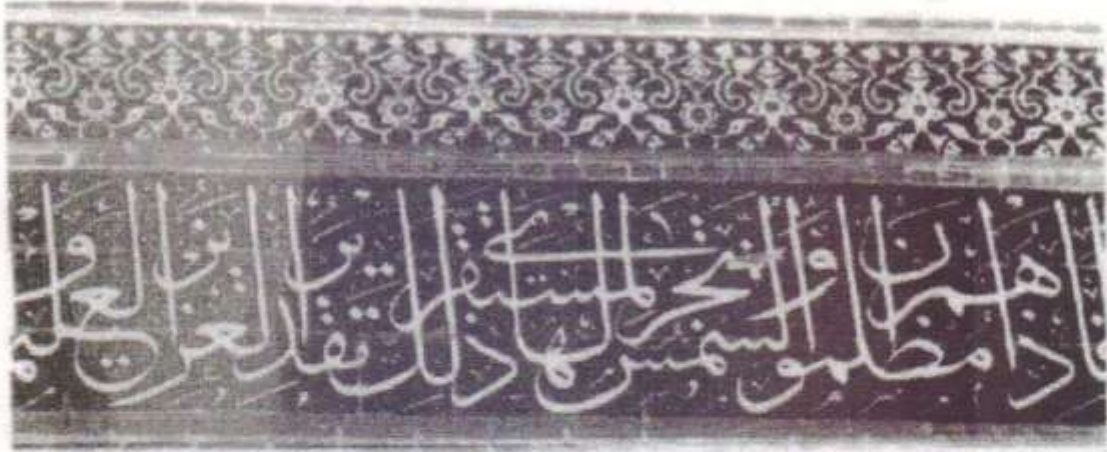 فاذا هم مظلمون والشمس تجري لمستقر لها ذلك تقدير العزيز العليم و